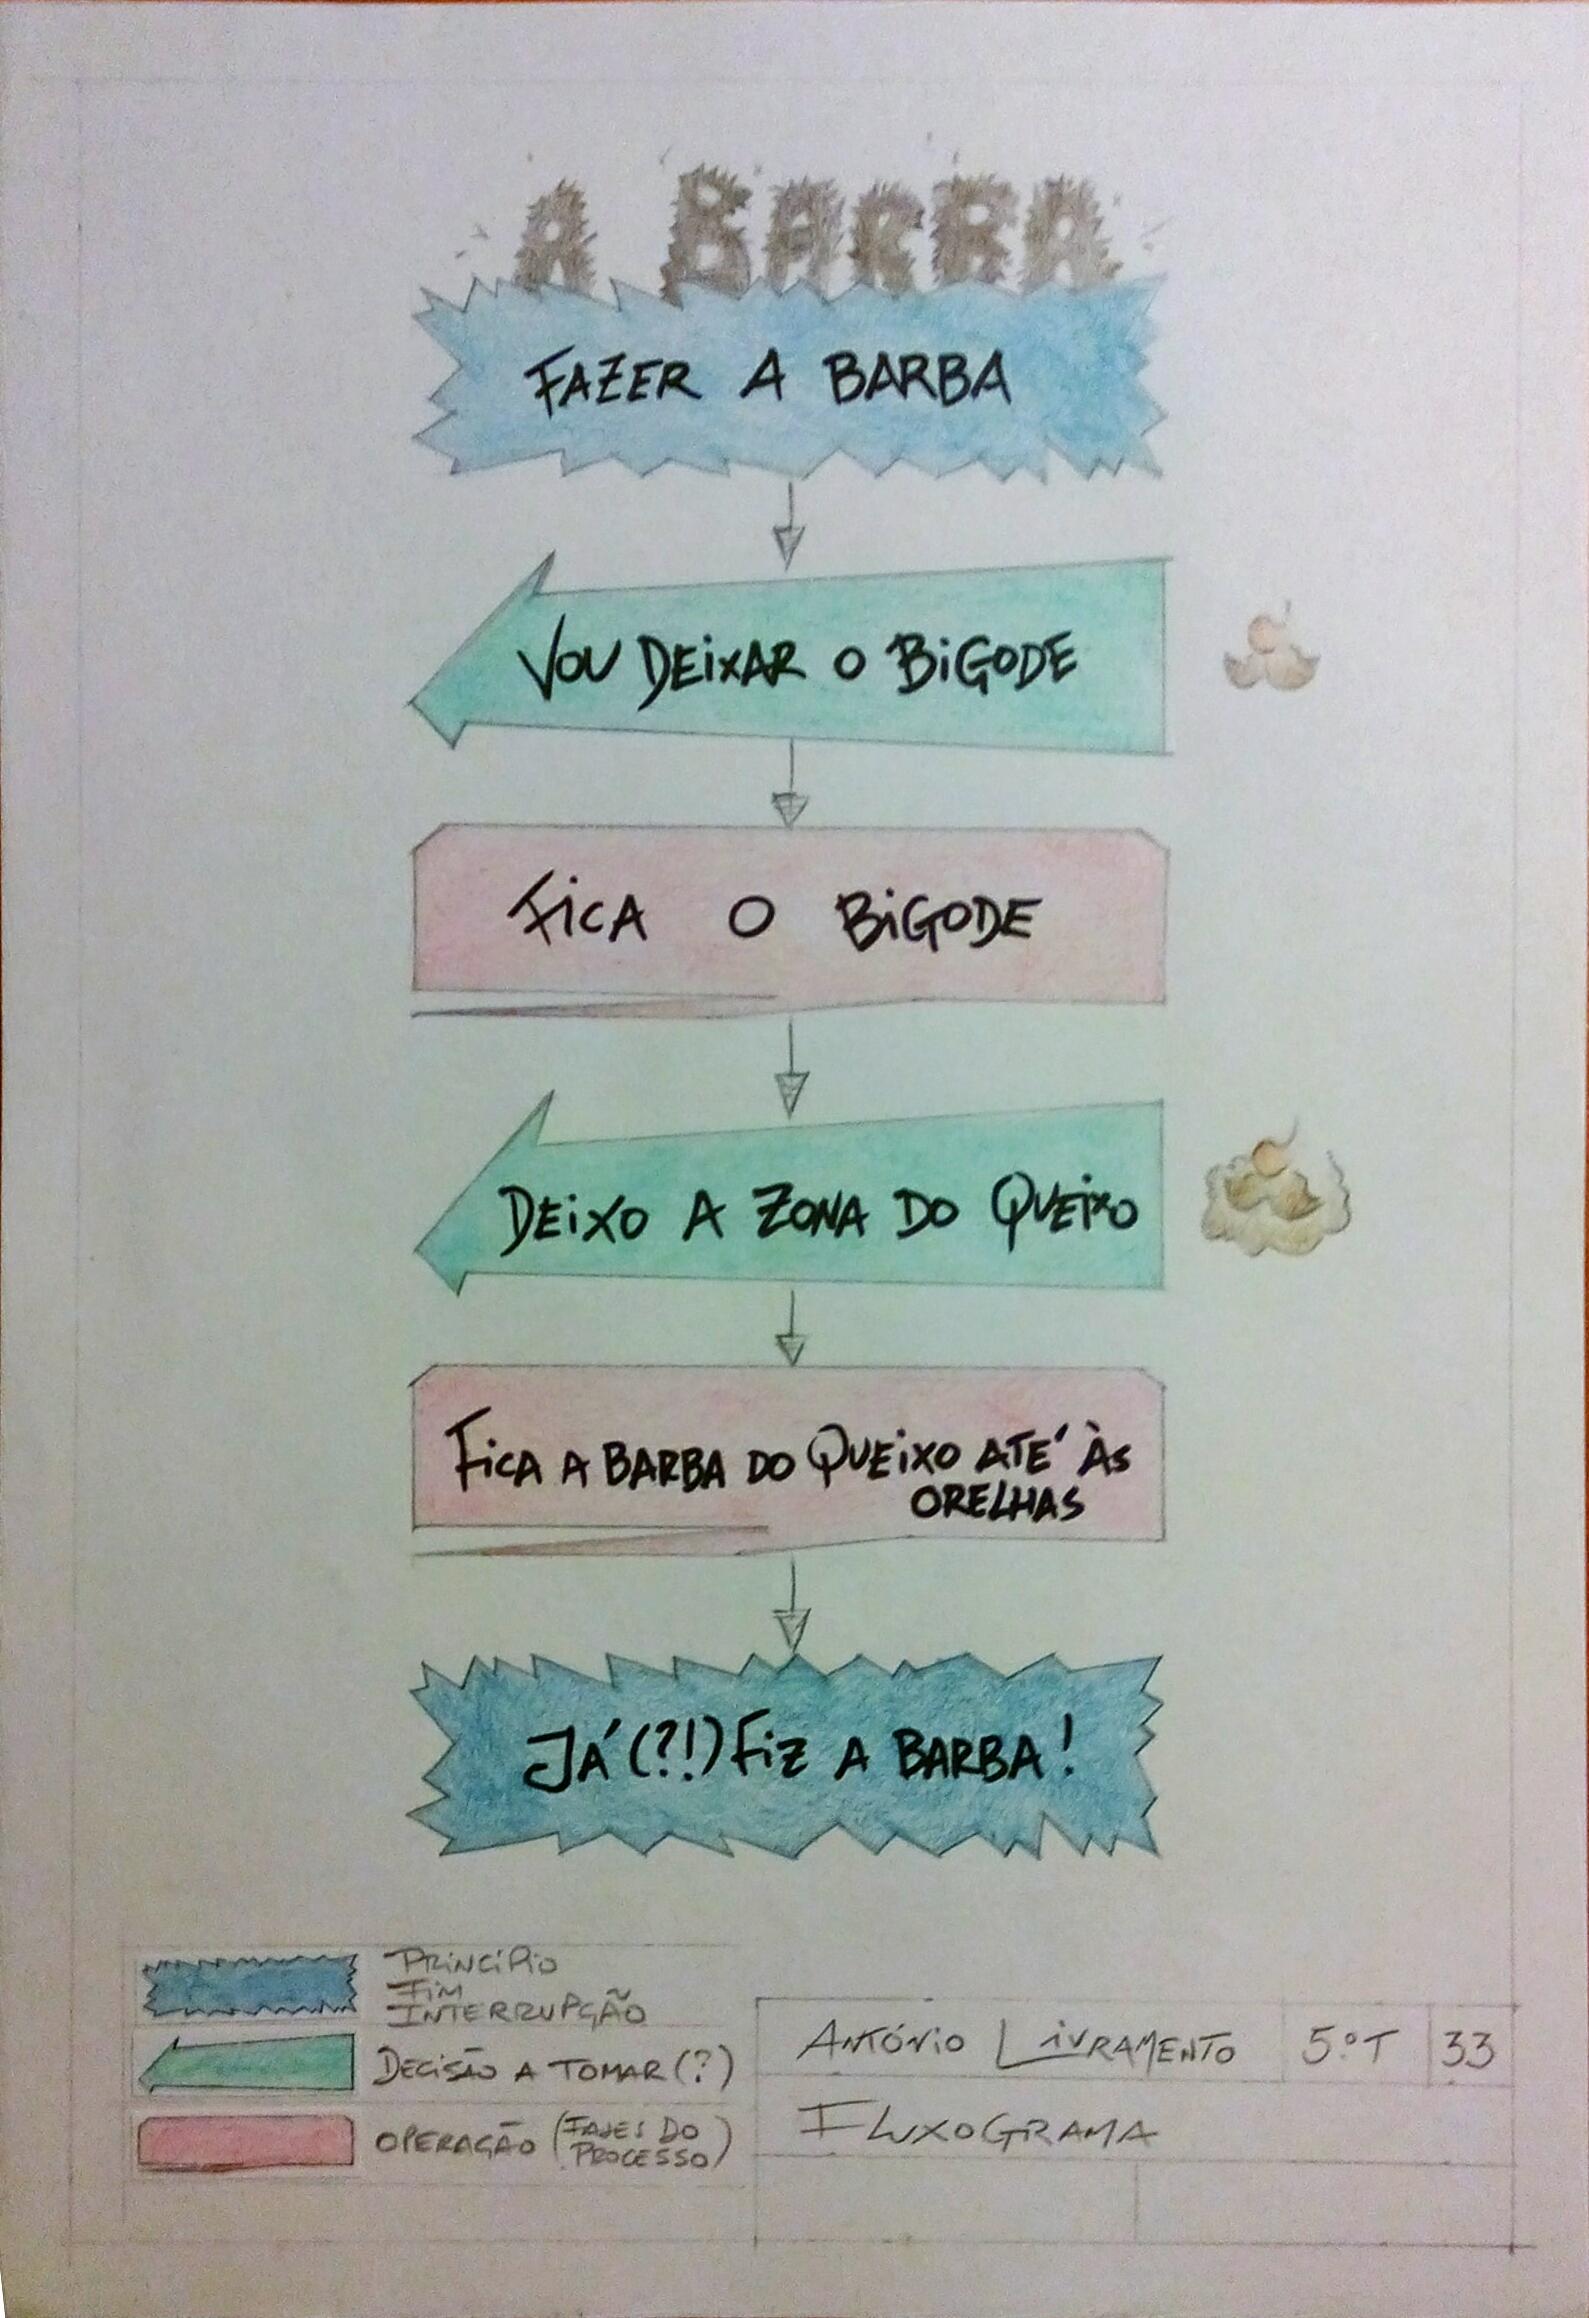 A BARBA
FAZER A BARBA
VOU DEIXAR O BIGODE
FICA O BIGODE
DEIXO A ZONA DO QUEIXO
FICA A BARBA DO QUEIXO ATÉ ÀS
ORELHAS
JÁ (?!) FIZ A BARBA!
PRINCÍPIO
FIM
INTERRUPÇÃO
DECISÃO A TOMAR (?)
OPERAÇÃO (FASES DO
PROCESSO)
ANTÓNIO LIVRAMENTO 5.º T 33
FLUXOGRAMA